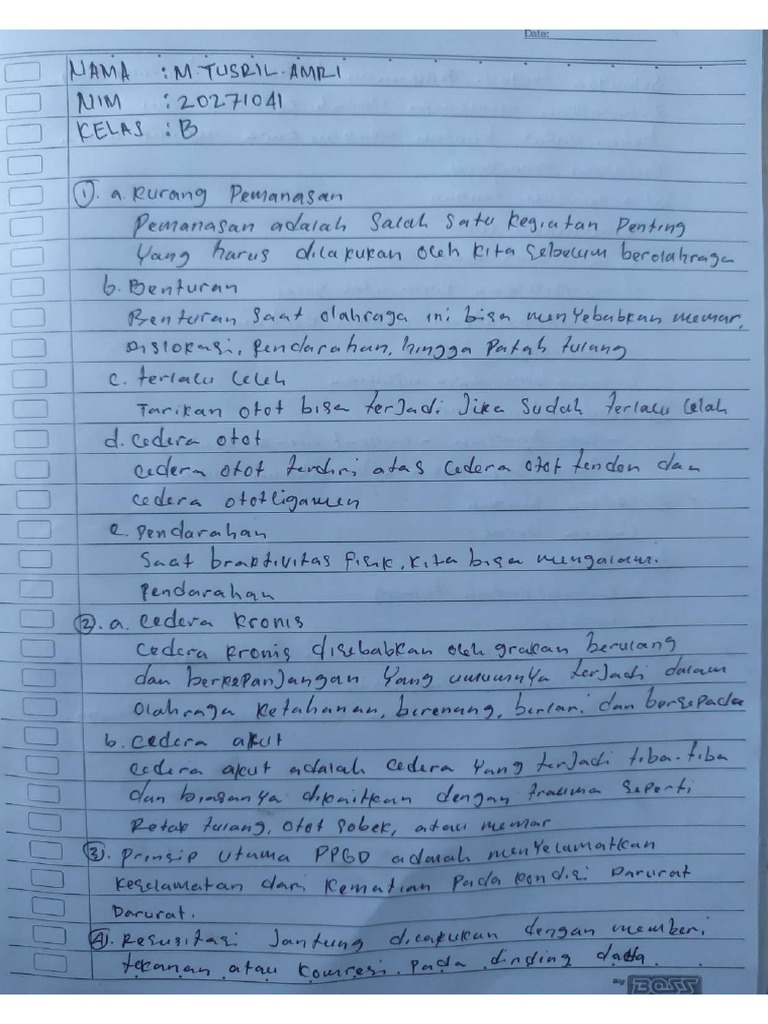 Date:
NAMA : M. TUSRIL. AMRI
NIM : 20271041
KELAS : B
1. a. Kurang Pemanasan
Pemanasan adalah Salah Satu Kegiatan Penting
Yang harus dilakukan oleh Kita Sebelum berolahraga
b. Benturan
Benturan Saat olahraga ini bisa menyebabkan memar,
Dislokasi, Pendarahan, hingga Patah tulang
c. terlalu leleh
Tarikan otot bisa terjadi Jika Sudah terlalu lelah
d. Cedera otot
Cedera otot terdiri atas Cedera otot tendon dan
cedera otot ligamen
e. Pendarahan
Saat braktivitas Fisik, Kita bisa mengalami
Pendarahan
2. a. Cedera Kronis
Cedera Kronis disebabkan oleh grakan berulang
dan berkepanjangan Yang umumnya terjadi dalam
Olahraga Ketahanan, berenang, berlari dan bersepada
b. Cedera akut
Cedera akut adalah Cedera Yang terjadi tiba-tiba
dan biasanya dikaitkan dengan trauma Seperti
Retak tulang, otot Sobek, atau memar
3. Prinsip Utama PPGD adalah menyelamatkan
Keselamatan dari Kematian Pada Kondisi Darurat
Darurat.
4. Resusitasi Jantung dilakukan dengan memberi
tekanan atau Komresi Pada dinding dada
by BOSS